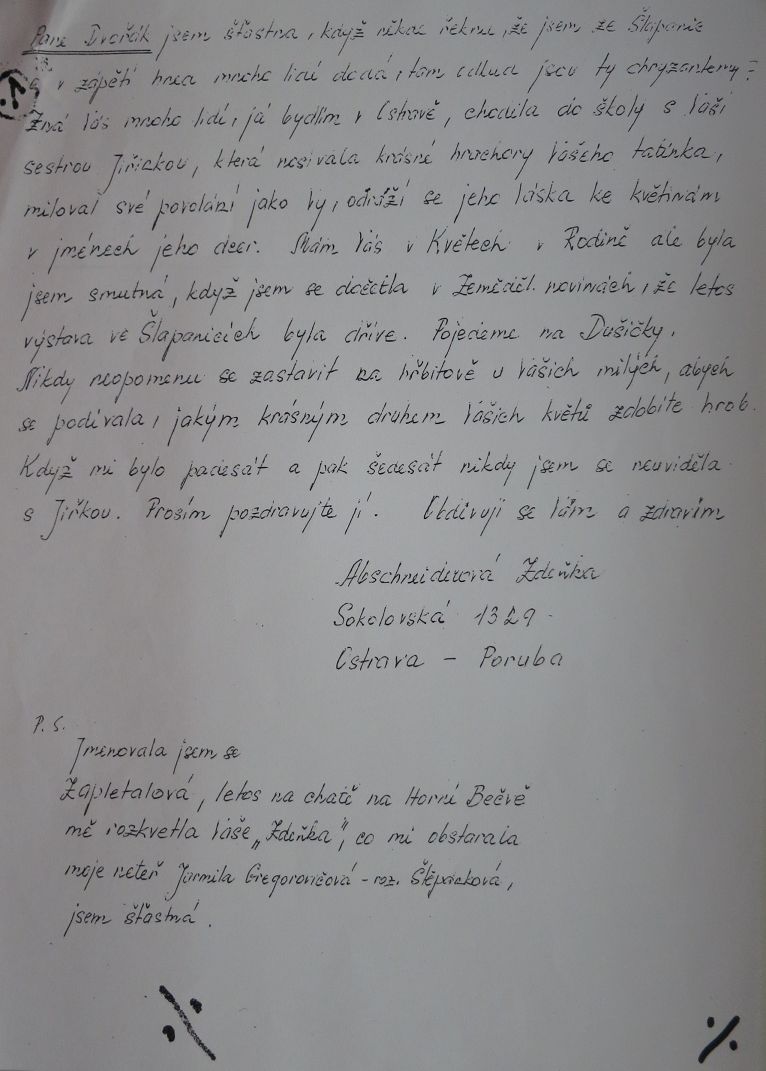 Pane Dvořák jsem šťastna, když někde řeknu, že jsem ze Šlapanic
a v zápětí hned mnoho lidí dodá, tam odkud jsou ty chryzantemy?
Zná Vás mnoho lidí, já bydlím v Ostravě, chodila do školy s Vaší
sestrou Jiřinkou, která nosívala krásné hrachory Vašeho tatínka,
miloval své povolání jako Vy, odráží se jeho láska ke květinám
v jménech jeho dcer. Mám Vás v Květech v Rodině ale byla
jsem smutná, když jsem se dočetla v Zeměděl. novinách, že letos
výstava ve Šlapanicích byla dříve. Pojedeme na Dušičky.
Nikdy neopomenu se zastavit na hřbitově u Vašich milých, abych
se podívala, jakým krásným druhem Vašich květů zdobíte hrob.
Když mi bylo padesát a pak šedesát nikdy jsem se neuviděla
s Jiřkou. Prosím pozdravujte jí. Obdivuji se Vám a zdravím
Abschneiderová Zdeňka
Sokolovská 1329
Ostrava – Poruba
P.S.
Jmenovala jsem se
Zapletalová, letos na chatě na Horní Bečvě
mě rozkvetla Vaše „Zdeňka", co mi obstarala
moje neteř Jarmila Gregorovičová - roz. Štěpánková,
jsem šťastná.